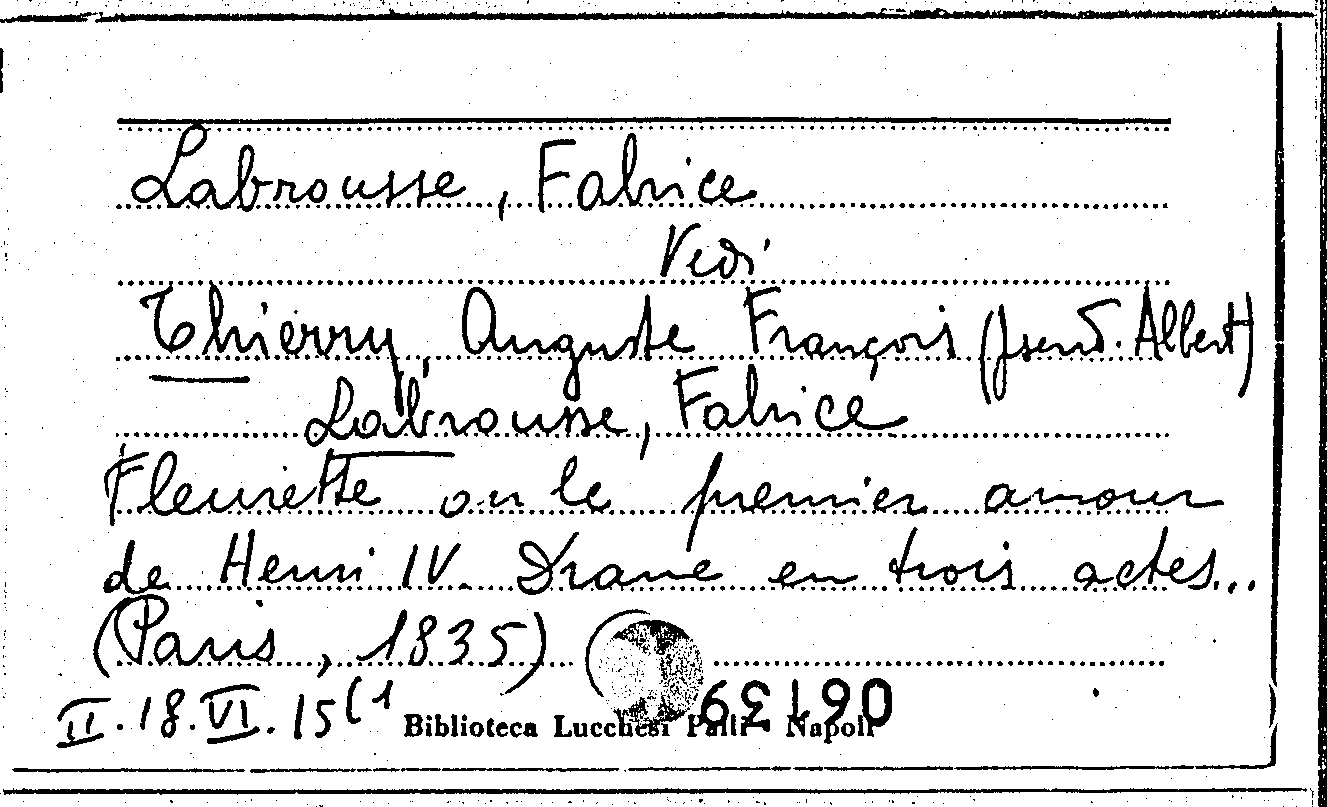 Labrousse, Fabrice
Vedi
Thierry, Auguste François (pseud. Albert)
Labrousse, Fabrice
Fleurette ou le premier amour
de Henri IV. Drame en trois actes...
(Paris, 1835)
II.18.VI.15(1
Biblioteca Lucchesi Palli - Napoli